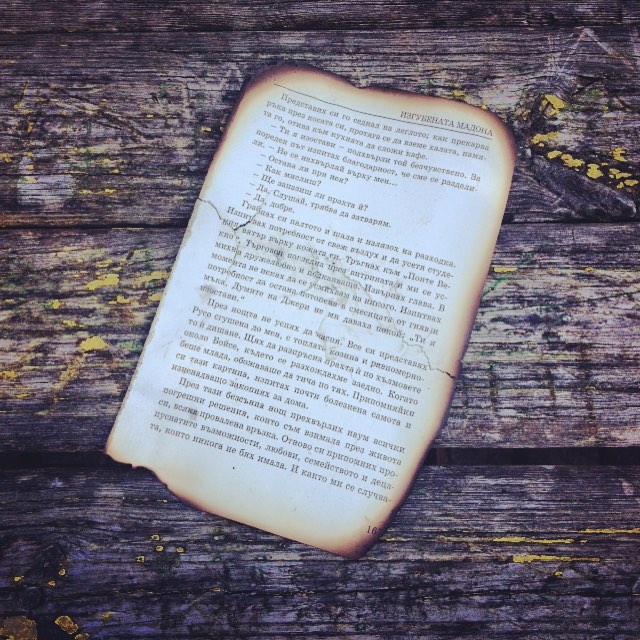 ИЗГУБЕНАТА МАДОНА
Представих си го седнал на леглото; как прекарва
ръка през косата си, протяга се да вземе халата, намя-
та го, отива към кухнята да сложи кафе.
— Ти я изостави – подхвърли той безчувствено. За
пореден път изпитах благодарност, че сме се раздели-
ли. — Не се нахвърляй върху мен...
— Остана ли при нея?
— Как мислиш?
— Ще запазиш ли праха ѝ?
— Да. Слушай, трябва да затварям.
— Да, добре.
Грабнах си палтото и шала и излязох на разходка.
Изпитвах потребност от свеж въздух и да усетя студе-
нината върху кожата си. Тръгнах към „Понте Ве-
Търговец погледна през витрината. Извърнах глава. В
потребност да остана
можата не исках да се
мисия. Думите на Джери не ми даваха покой: „Ти я
изостави."
През нощта не успях да заспя. Все си представях
Русо сгушена до мен, с топлата козина и равномерно-
то ѝ дишане. Щях да разпръсна праха ѝ по хълмовете
около Войсе, където се разхождахме заедно. Когато
беше млада, обожаваше да тича по тях. Припомняйки
си тази картина, изпитах почти болезнена самота и
изненадващо закопнях за дома.
През тази безсънна нощ прехвърлих наум всички
погрешни решения, които съм взимала през живота
си, всяка провалена връзка. Отново си припомних про-
пуснатите възможности, любови, семейството и деца-
та, които никога не бях имала. И както ми се случва-